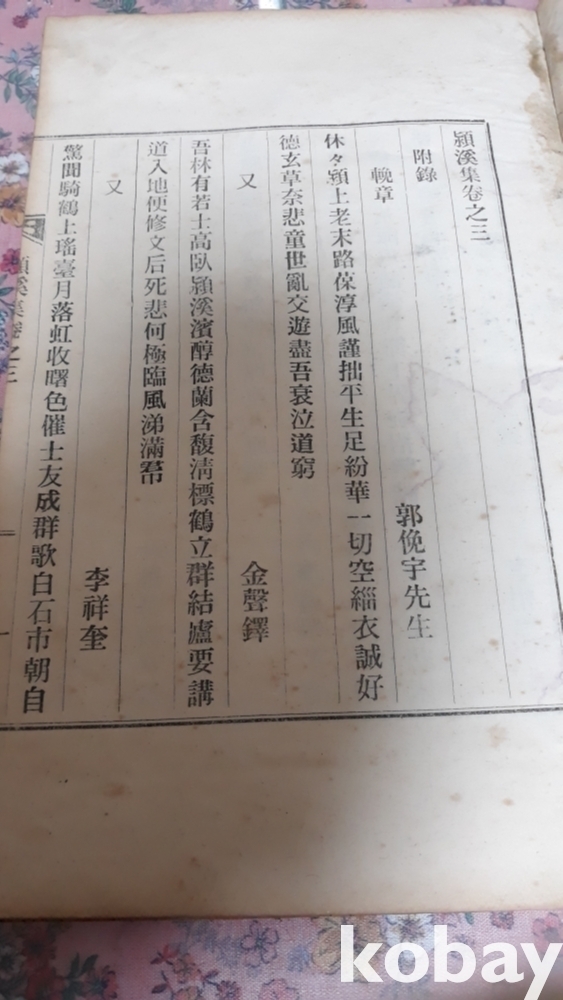 潁溪集卷之三
附錄
輓章
郭俛宇先生
休々潁上老末路葆淳風謹拙平生足紛華一切空緇衣誠好
德玄草奈悲童世亂交遊盡吾衰泣道窮
又
金聲鐸
吾林有若士高臥潁溪濱醇德蘭含馥清標鶴立群結廬要講
道入地便修文后死悲何極臨風涕滿帬
又
李祥奎
驚聞騎鶴上瑤臺月落虹收曙色催士友成群歌白石市朝自
潁溪集卷之三
一
kobay